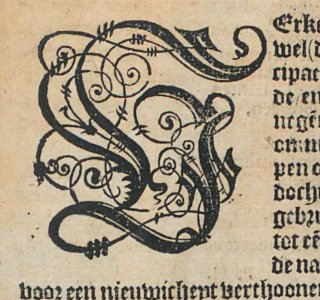 Erke
wel(d
cipac
de/en
negē
om m
pen o
doch
gebru
tot eē
de na
voor een nieuwicheyt verthoonen